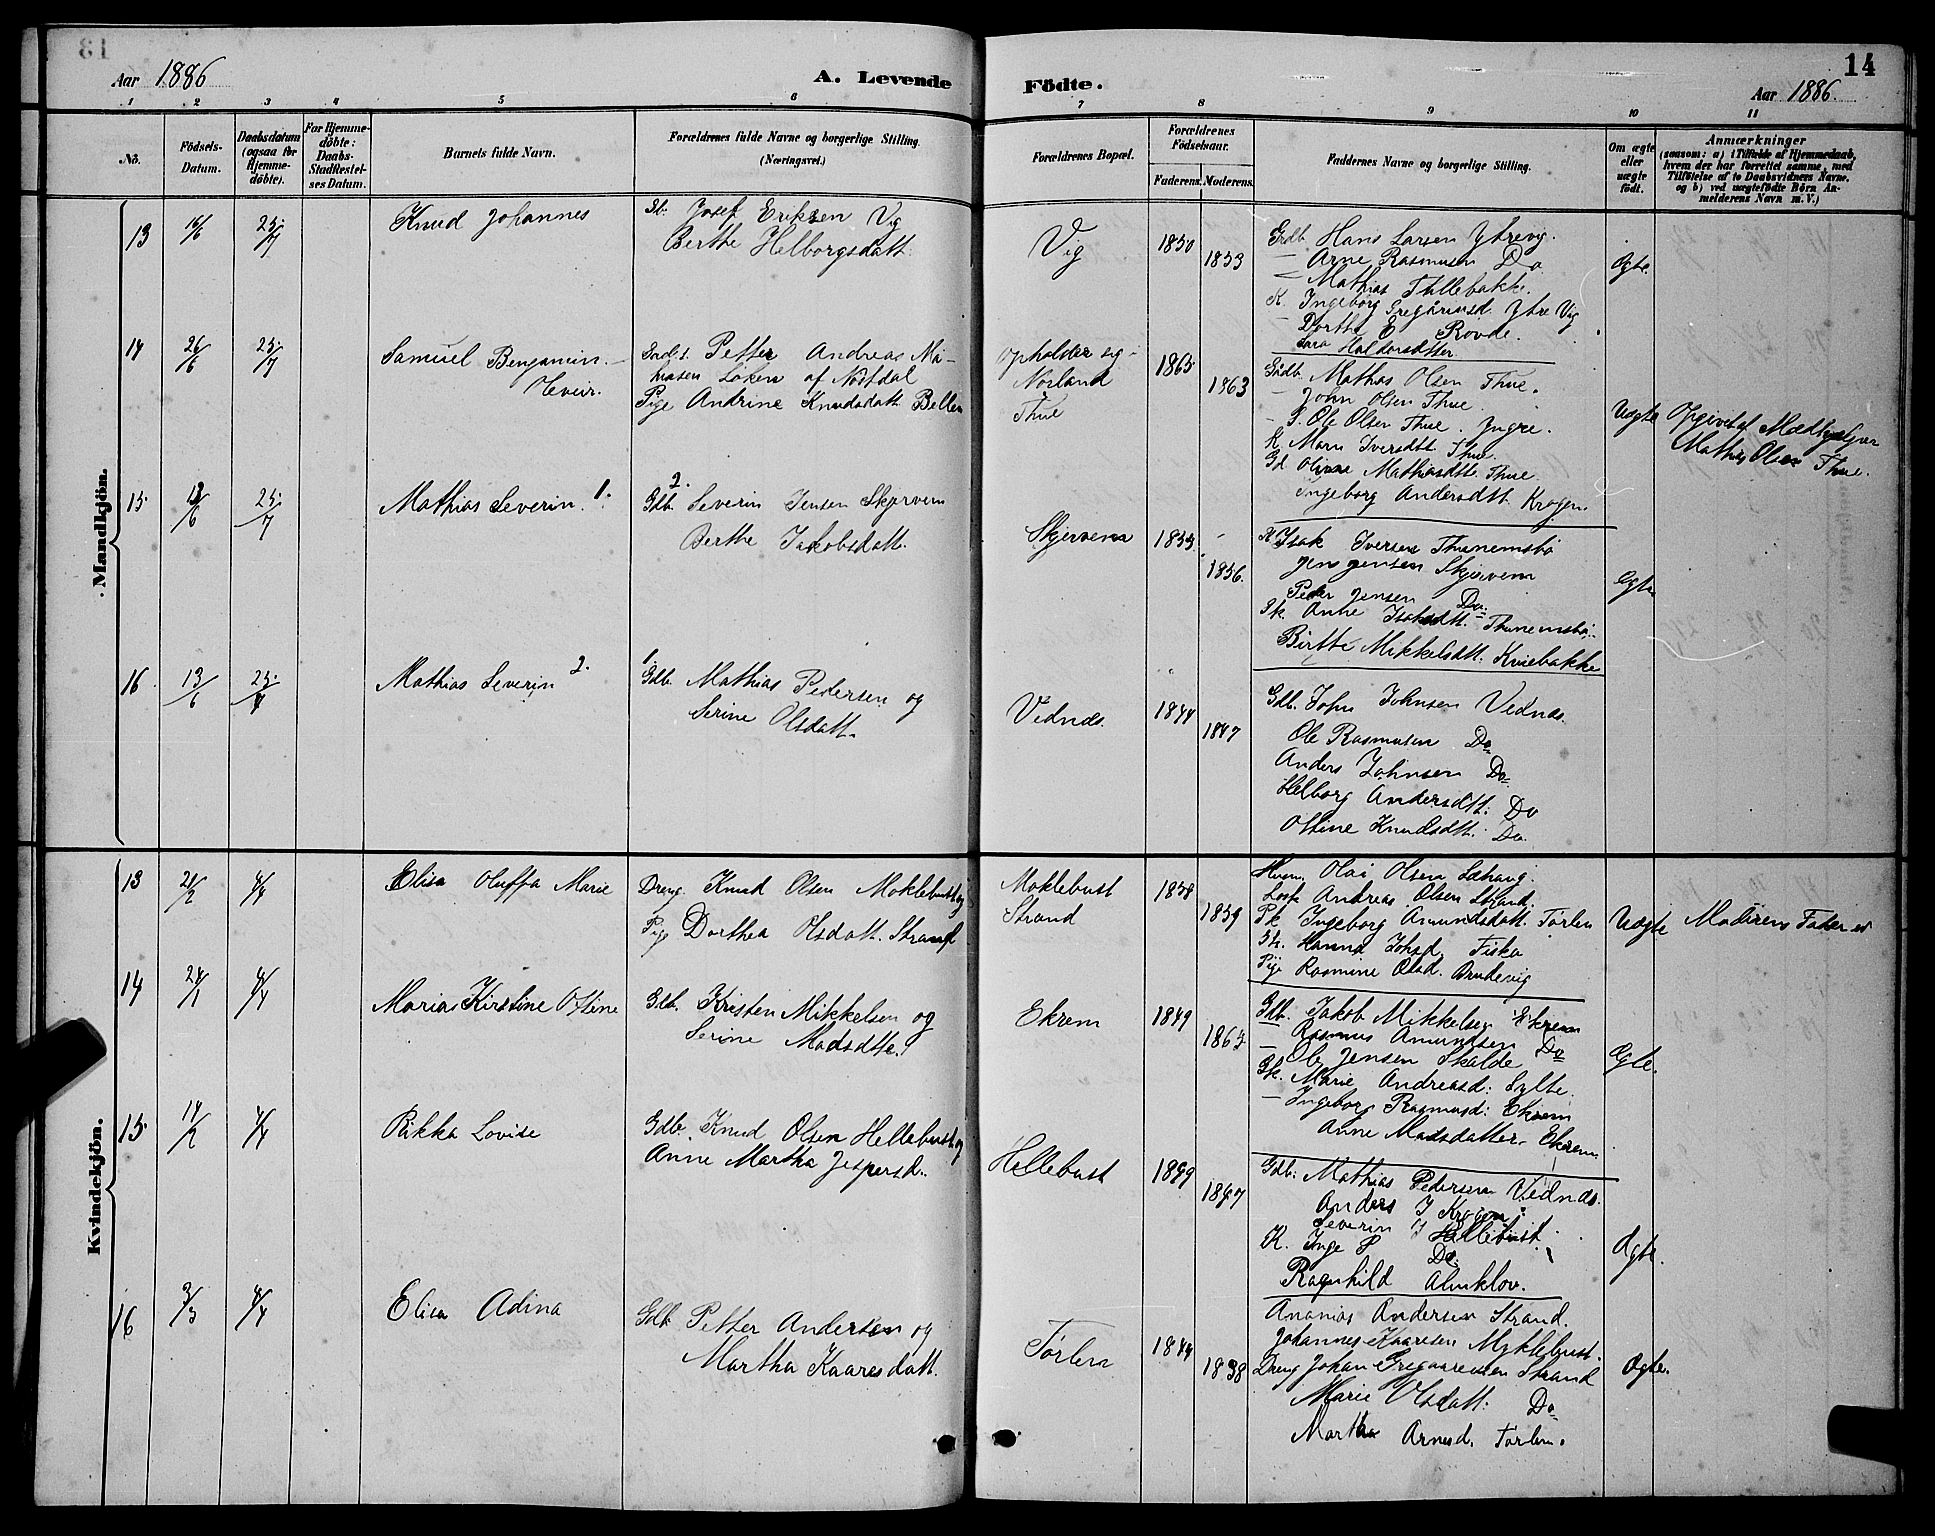 Aar 1886
A. Levende
Födte.
14
Aar 1886.
1 2 3 4 5 6 7 8 9 10 11
No.
Födsels-
Datum.
Daabsdatum
(ogsaa for
Hjemme-
döbte).
For Hjemme-
döbte:
Daabs-
Stadfæstel-
ses Datum.
Barnets fulde Navn.
Forældrenes fulde Navne og borgerlige Stilling.
(Næringsvei.)
Forældrenes Bopæl.
Forældrenes
Födselsaar.
Faderens.
Moderens.
Faddernes Navne og borgerlige Stilling.
Om ægte
eller
uægte
födt.
Anmærkninger
(saasom: a) i Tilfælde af Hjemmedaab,
hvem der har forrettet samme, med
Tilföielse af to Daabsvidners Navne.
og b) ved uægtefödte Börn An-
melderens Navn m. V.)
Mandkjön.
13
25/7
Knud Johannes
Josef Eriksen Vig
Berthe Helborgsdatt.
Vig
1850
1853
Grdb. Hans Larsen Ytrevig.
— Arne Rasmusen Do
— Mathias Tullebakke.
K. Ingeborg Gregariusd. Ytre Vig
Dorthe E Rovde.
Sara Haldorsdatter
Ægte.
14
26/6
25/7
Samuel Bengamin
Petter Andreas Ma-
thiasen Løken of Nostdal
Pige Andrine Knudsdatt. Bellen
Opholder sig i
Norland
Thue
1865
1863
Gdb. Mathias Olsen Thue.
— John Olsen Thue
— S. Ole Olsen Thue. Yngre.
K. Marn Iversdt. Thue.
Gd. Olivia Mathiasdtt. Thue.
Ingeborg Andersdtt. Krogen
Uægte
Opgivet af Mathias Olsen Thue.
15
25/7
Mathias Severin. 1.
2.
Gdb. Severin Jensen Skjervem
Berthe Jakobsdatt.
Skjervem
1855
1856.
K Isak Iversen Thunemsbø
Jens Jensen Skjervem
Peder Jensen Do
Pk. Anne Isaksdtt. Thunemsbø.
Birthe Mikkelsdtt. Kviebakke
Ægte
16
13/6
25/7
Mathias Severin 2.
1.
Gdb. Mathias Pedersen og
Serine Olsdatt.
Vednæs.
1844
1847
Gdb. John Johnsen Vednæs.
Ole Rasmusen Do
Anders Johnsen Do
Helborg Andersdtt: Do
Oline Knudsdtt: Do
Kvindekjön.
13
21/2
4/4
Elisa Oluffa Marie
Dreng Knud Olsen Moklebust og
Pige Dorthea Olsdatt. Strand
Moklebust
Strand
1858
1859
Husm. Olai Olsen Sæhaug.
Losk. Andreas Olsen Strand.
Pk Ingeborg Amundsdatt. Tørlen
Hanna Johsd. Fiska
Pige Rasmine Olsd. Brudevig
Uægte
Moderens Fader
14
24/1
4/4
Maria Kirstine Oline
Gdb. Kristen Mikkelsen og
Serine Madsdtt.
Ekrem
1849
1862
Gdb. Jakob Mikkelsen Ekrem
— Rasmus Amundsen Do
— Ole Jensen Skolde
Gk. Marie Andreasd: Sylte.
— Ingeborg Rasmusd: Ekrem
Anne Madsdatter Ekrem
Ægte.
15
14/2
4/4
Rikka Lovise
Gdb. Knud Olsen Hellebust og
Anne Martha Jespersd.
Hellebust
1849
1847
Gdb. Mathias Pedersen Vednæs.
Anders J Krogen
Severin J Hellebust.
K. Inge P Do.
Ragnhild Almklov.
Ægte.
16
3/3
4/4
Elisa Adina
Gdb Petter Andersen og
Martha Kaaresdatt.
Tørlen
1844
1838
Ananias Andersen Strand.
Johannes Kaaresen Myklebust.
Dreng Johan Gregoriusen Strand
Marie Olsdatt: Do
Martha Arnesd. Tørlen.
Ægte.